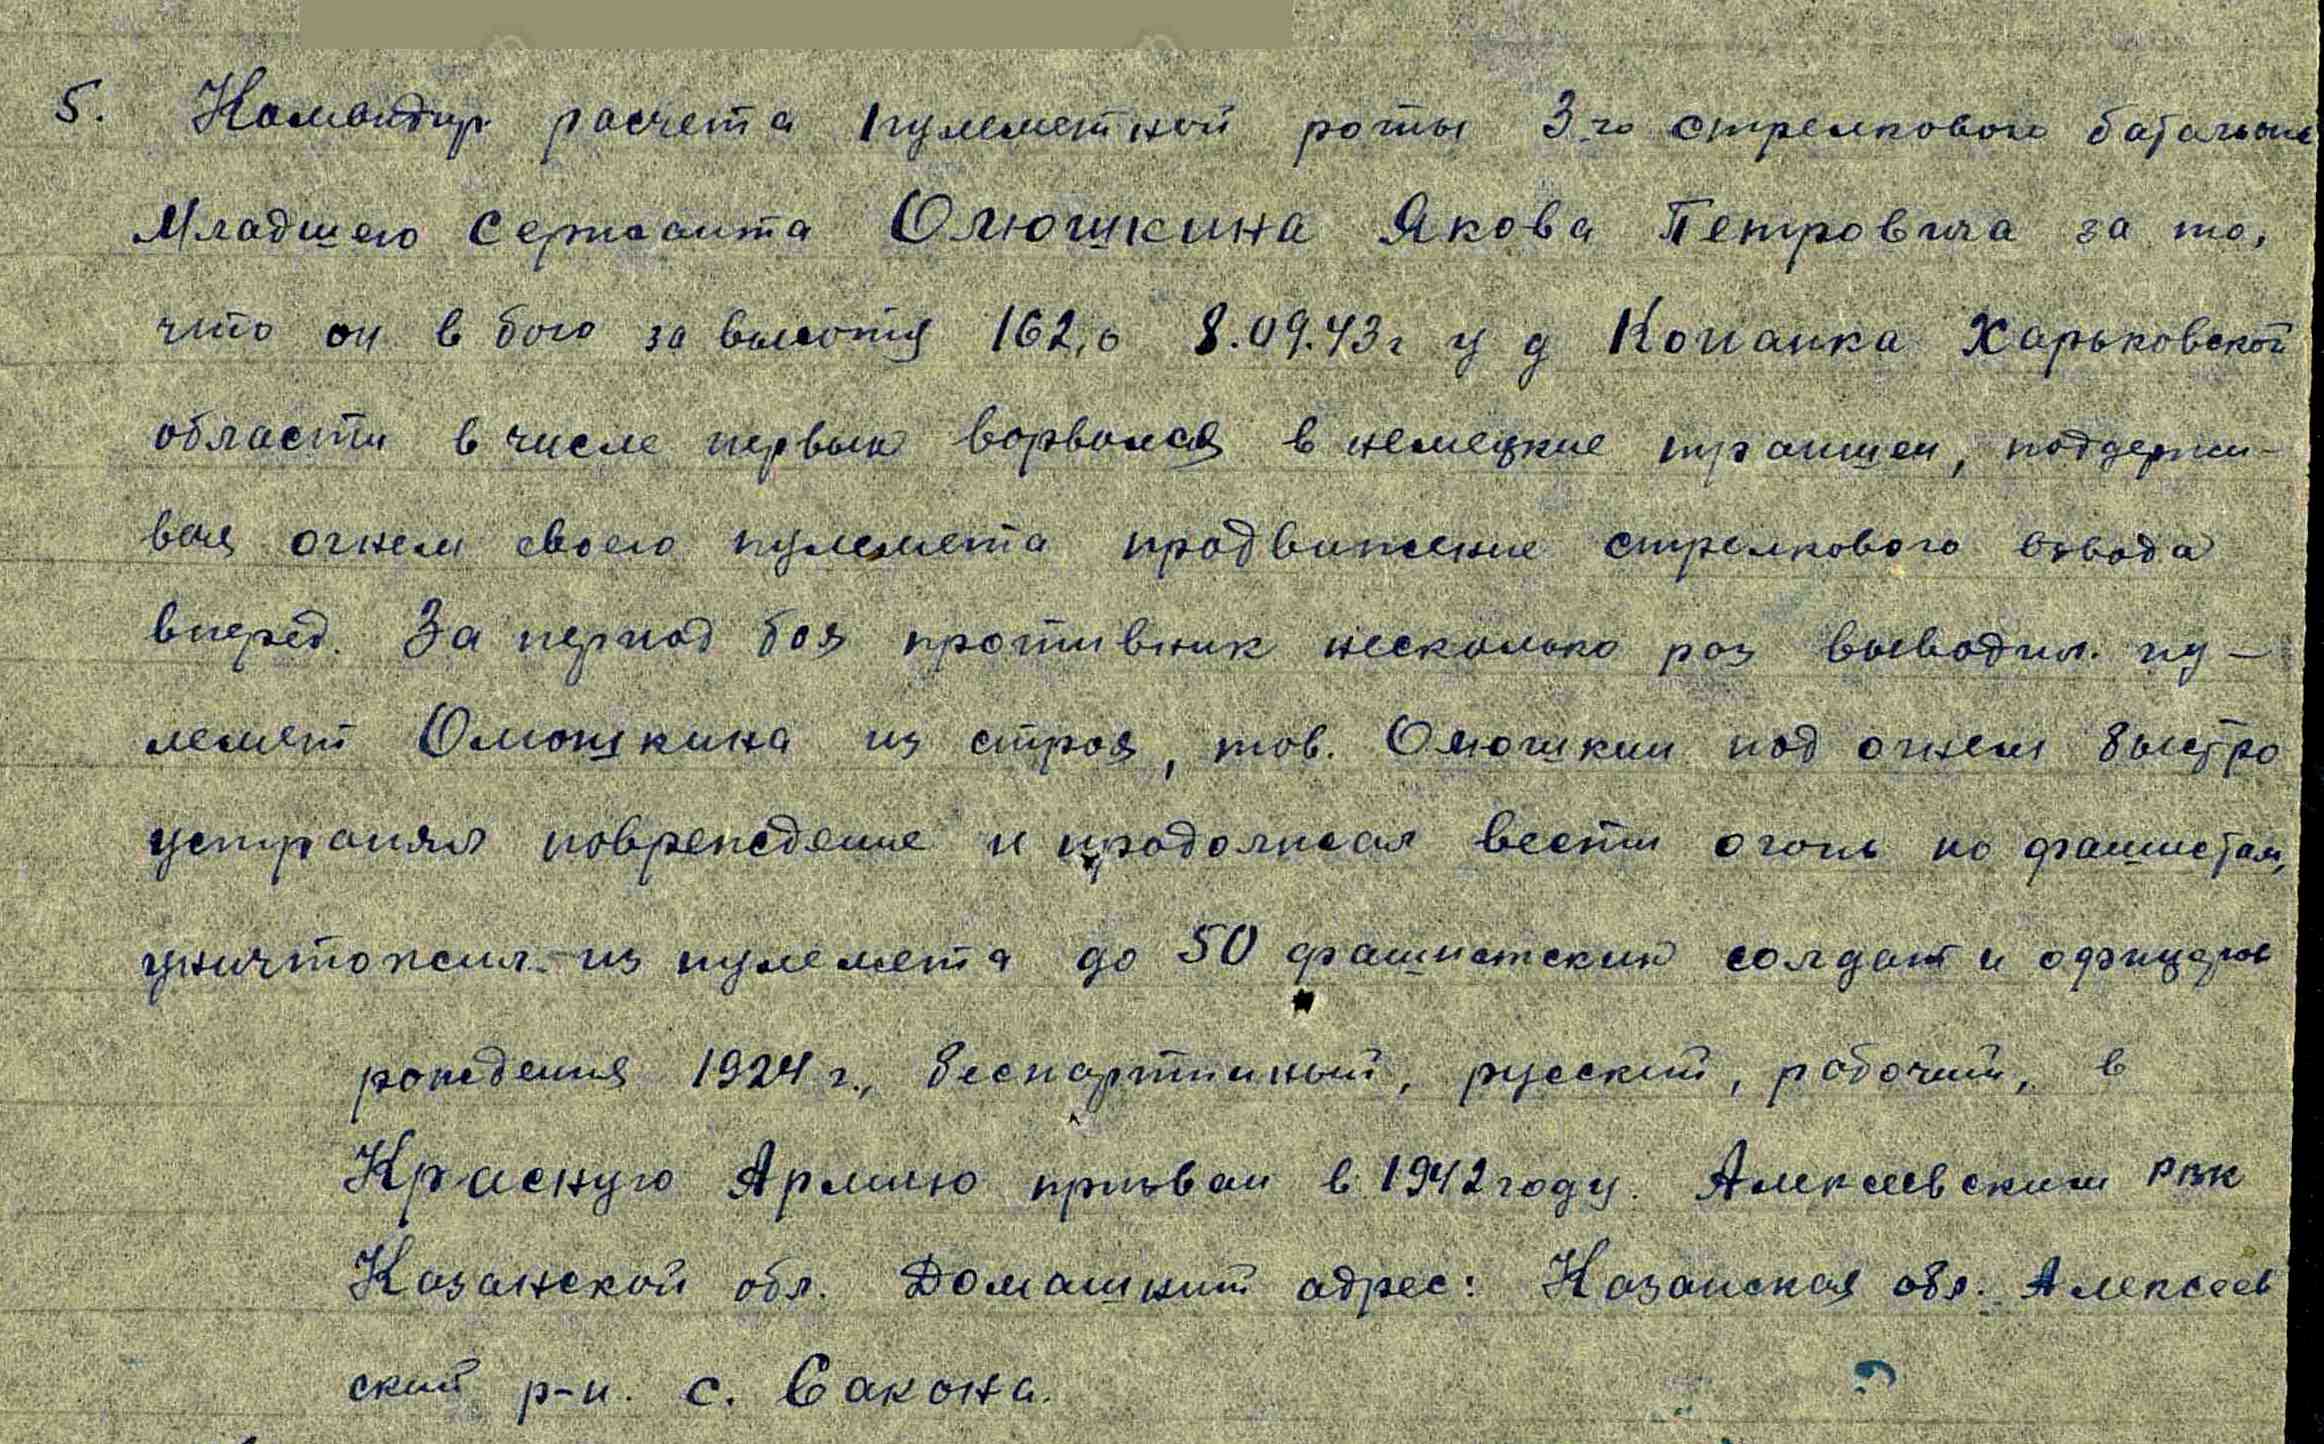 5. Командир расчета пулеметной роты 3-го стрелкового батальона
Младшего Сержанта Олюшкина Якова Петровича за то,
что он в бою за высоту 162,0 8.09.43г у д Копанка Харьковской
области в числе первых ворвался в немецкие траншеи, поддержи-
вая огнем своего пулемета продвижение стрелкового взвода
вперед. За период боя противник несколько раз выводил пу-
лемет Олюшкина из строя, тов. Олюшкин под огнем быстро
устранял повреждение и продолжал вести огонь по фашистам,
уничтожил из пулемета до 50 фашистских солдат и офицеров
рождения 1924 г., беспартийный, русский, рабочий, в
Красную Армию призван в 1942 году. Алексеевским РВК
Казанской обл. Домашний адрес: Казанская обл. Алексеев
ский р-н. с. Сакона.